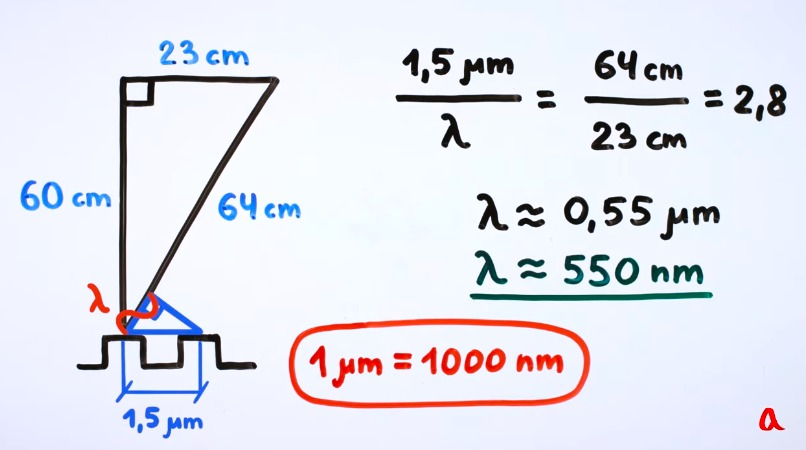 23 cm
60 cm
64 cm
λ
1,5 μm
1,5 μm / λ = 64 cm / 23 cm = 2,8
λ ≈ 0,55 μm
λ ≈ 550 nm
1 μm = 1000 nm
a